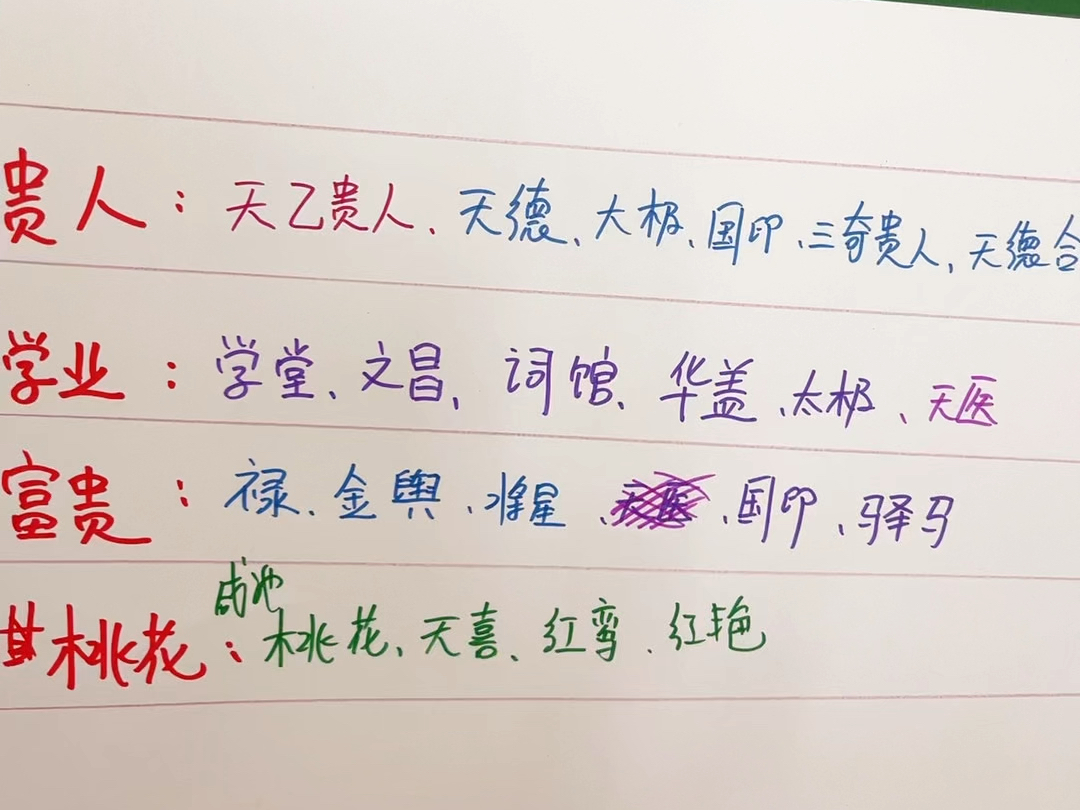 贵人：天乙贵人、天德、太极、国印、三奇贵人、天德合
学业：学堂、文昌、词馆、华盖、太极、天医
富贵：禄、金舆、将星、国印、驿马
咸池
桃花：桃花、天喜、红鸾、红艳